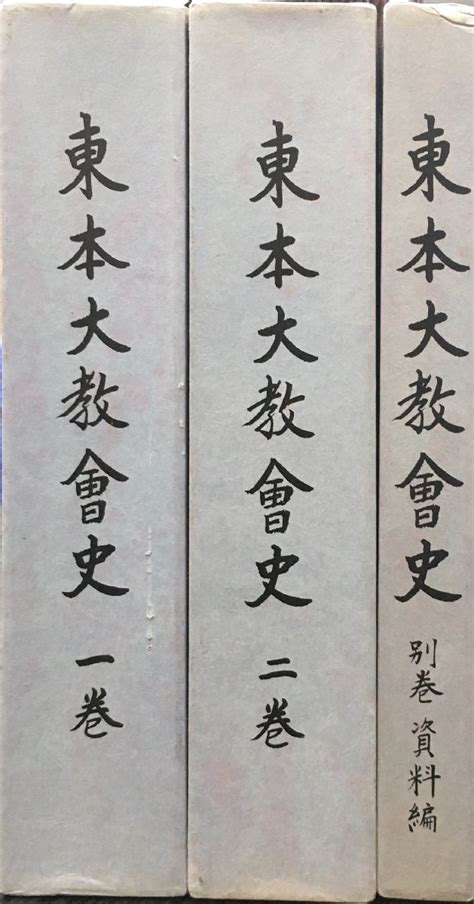 東本大教會史 一巻
東本大教會史 二巻
東本大教會史 別巻 資料編